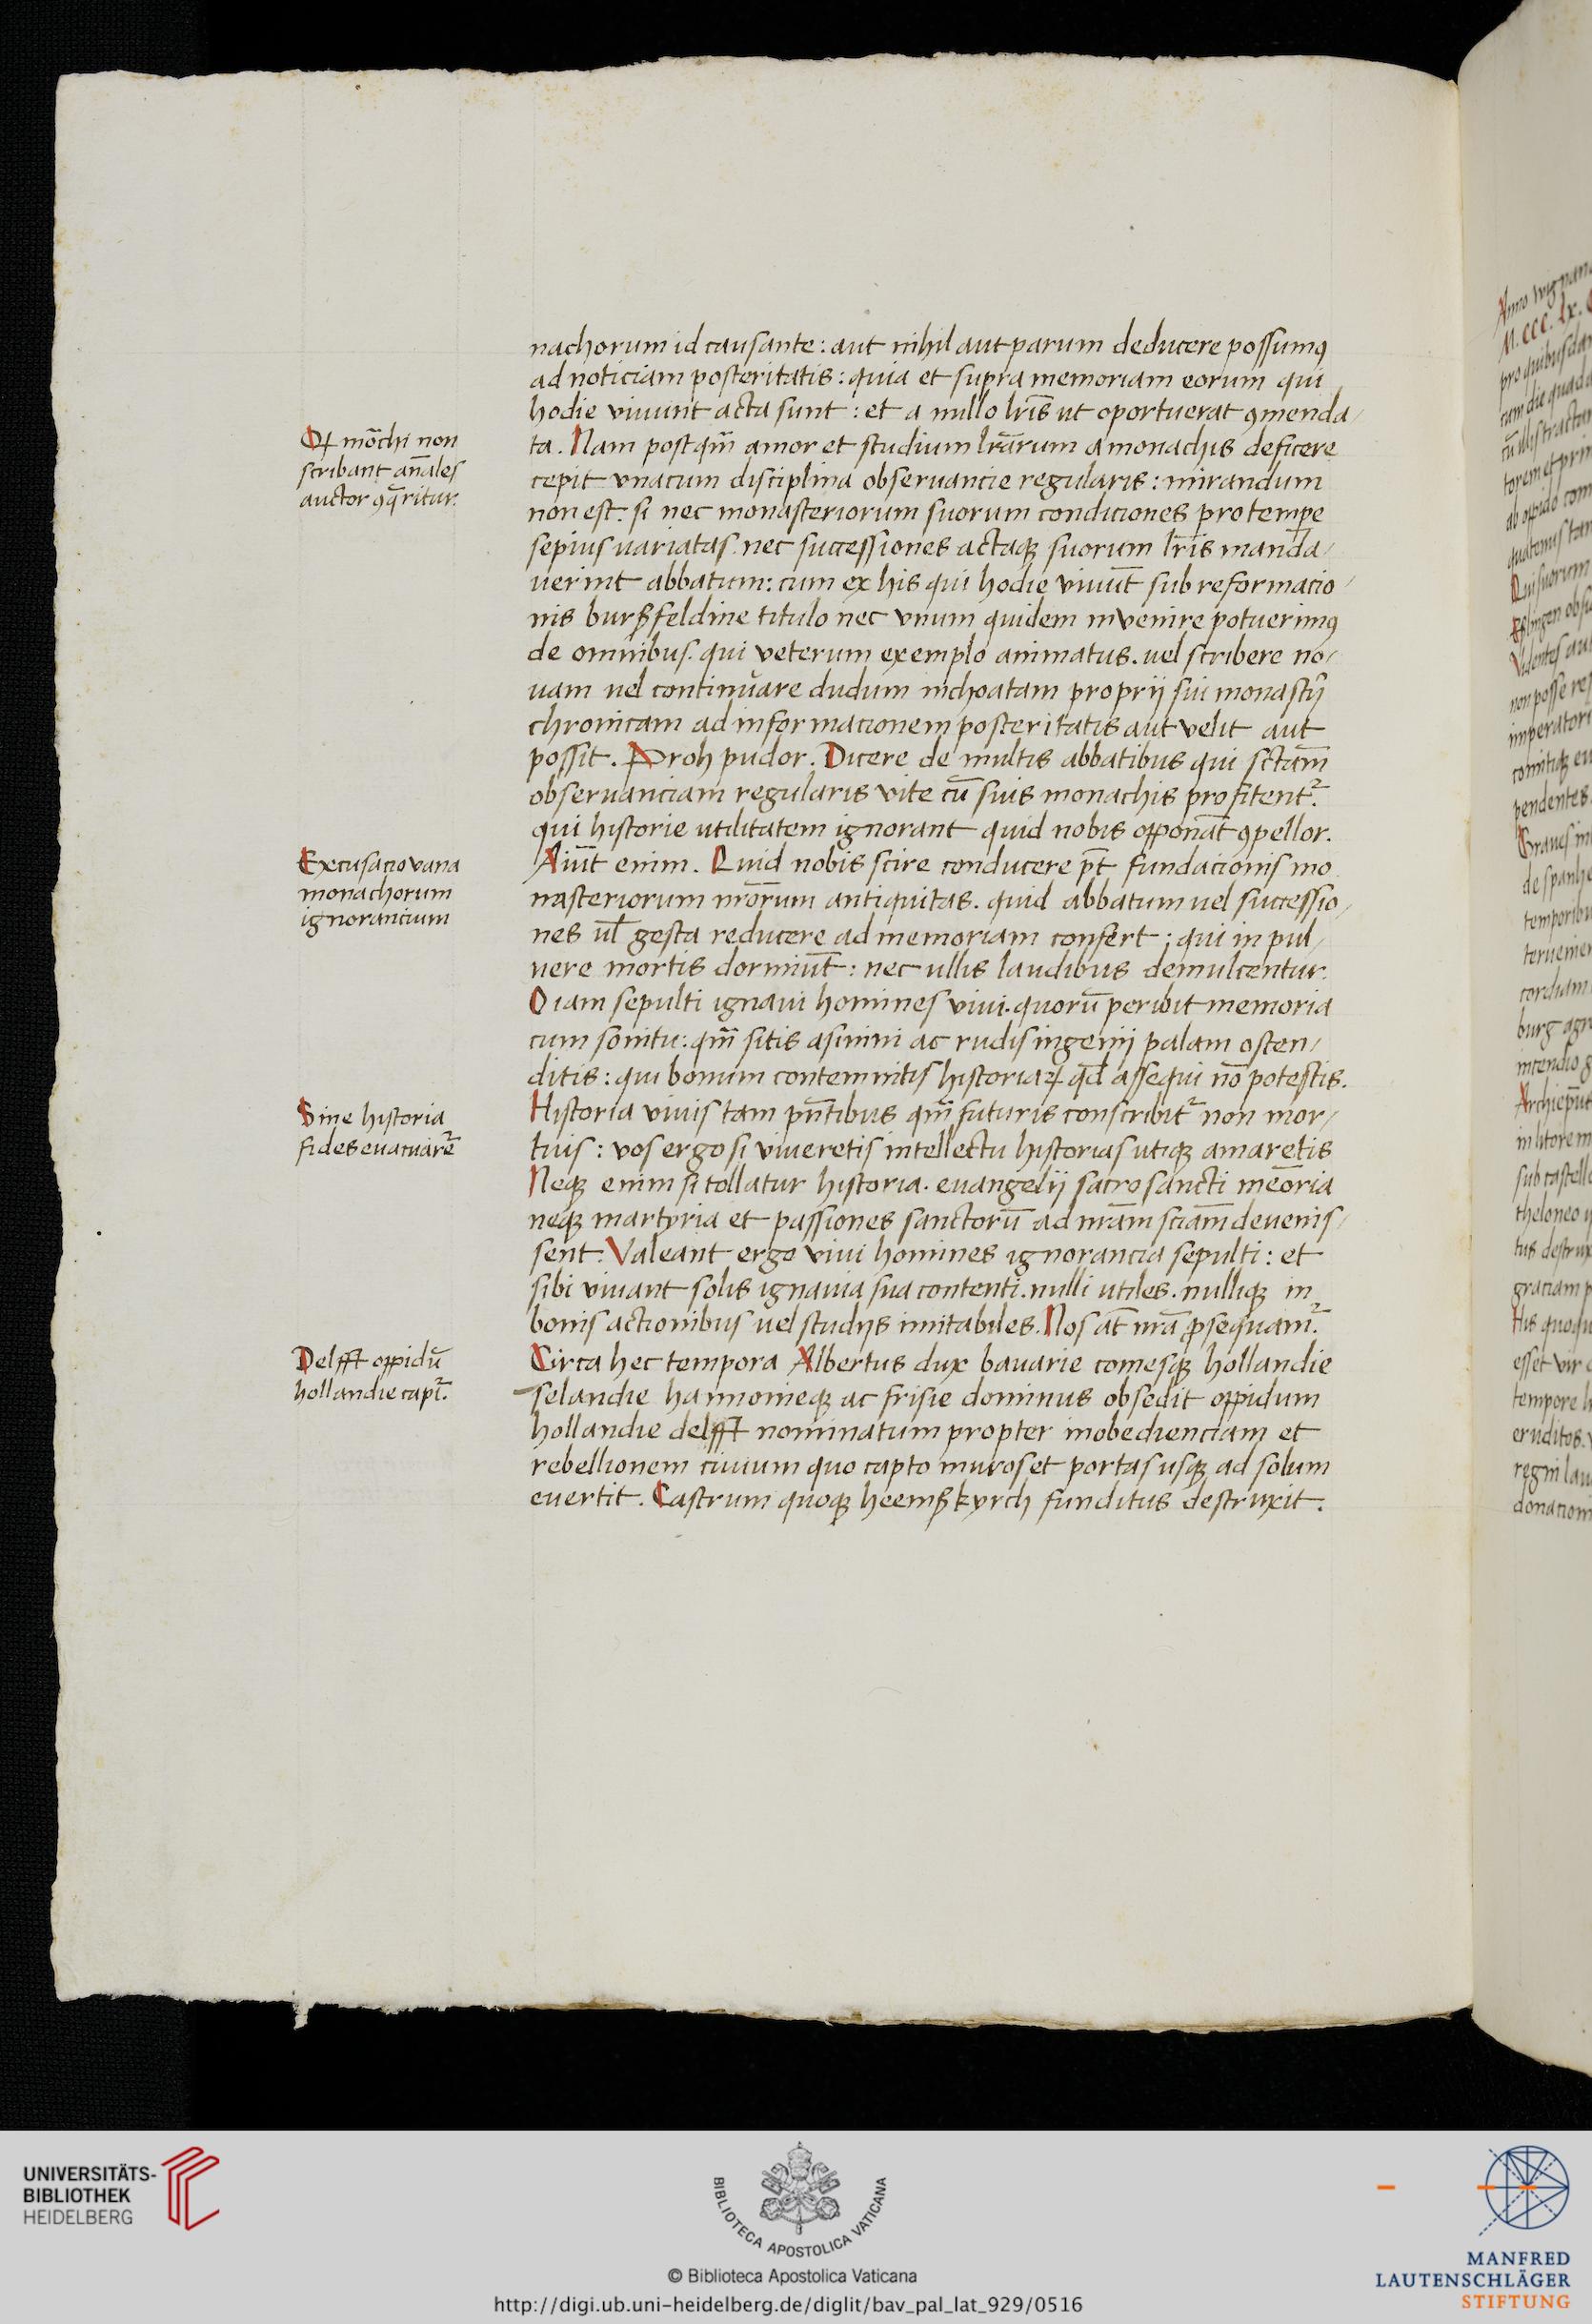 nachorum id causante: aut nihil aut parum deducere possumꝰ
ad noticiam posteritatis: quia et supra memoriam eorum qui
hodie viuunt acta sunt: et a nullo lr̄is ut oportuerat ꝯmenda/
ta. Nam postqm̄ amor et studium lr̄arum a monachis deficere
cepit vnacum disciplina obseruancie regularis: mirandum
non est: si nec monasteriorum suorum condiciones pro temꝑe
sepius variatas. nec successiones actaqꝫ suorum lr̄is manda/
uerint abbatum: cum ex his qui hodie viuūt sub reformacio/
nis burßfeldine titulo nec vnum quidem invenire potuerimꝰ
de omnibus. qui veterum exemplo animatus. uel scribere no/
uam uel continuare dudum inchoatam proprij sui monastij
chronicam ad informacionem posteritatis aut velit aut
possit. Proh pudor. Dicere de multis abbatibus qui sctam̄
obseruanciam regularis vite cū suis monachis profitentᷣ.
qui historie utilitatem ignorant quid nobis opponāt ꝯpellor.
Aiūt enim. Quid nobis scire conducere pt̄ fundacionis mo
nasteriorum nr̄orum antiquitas. quid abbatum uel successio/
nes ul̄ gesta reducere ad memoriam confert: qui in pul/
uere mortis dormiūt: nec ullis laudibus demulcentur.
O iam sepulti ignaui homines viui. quorū peribit memoria
cum sonitu: qm̄ sitis asinini ac rudis ingenij palam osten/
ditis: qui bonum contemnitis historiaꝝ qd̄ assequi nō potestis.
Historia viuis tam pn̄tibus qm̄ futuris conscribitᷣ non mor/
tuis: vos ergo si viueretis intellectu historias utiqꝫ amaretis
Neqꝫ enim si tollatur historia. euangelij sacrosancti mēoria
neqꝫ martyria et passiones sanctorū ad nr̄am sciām deuenis/
sent. Valeant ergo viui homines ignorancia sepulti: et
sibi viuant solis ignauia sua contenti. nulli utiles. nulliqꝫ in
bonis actionibus uel studijs imitabiles. Nos āt nr̄a ꝓsequamᷣ.
Circa hec tempora Albertus dux bauarie comesqꝫ hollandie
selandie hannonieqꝫ ac frisie dominus obsedit oppidum
hollandie delfft nominatum propter inobedienciam et
rebellionem ciuium quo capto muros et portas usqꝫ ad solum
euertit. Castrum quoqꝫ heemßkyrch funditus destruxit.
Qꝙ mōchi non
scribant an̄ales
auctor ꝯq̄ritur.
Excusacio vana
monachorum
ignorancium
Sine historia
fides euacuarēᷣ
Delfft oppidū
hollandie captᷣ.
UNIVERSITÄTS-
BIBLIOTHEK
HEIDELBERG
BIBLIOTECA APOSTOLICA VATICANA
© Biblioteca Apostolica Vaticana
http://digi.ub.uni-heidelberg.de/diglit/bav_pal_lat_929/0516
MANFRED
LAUTENSCHLÄGER
STIFTUNG